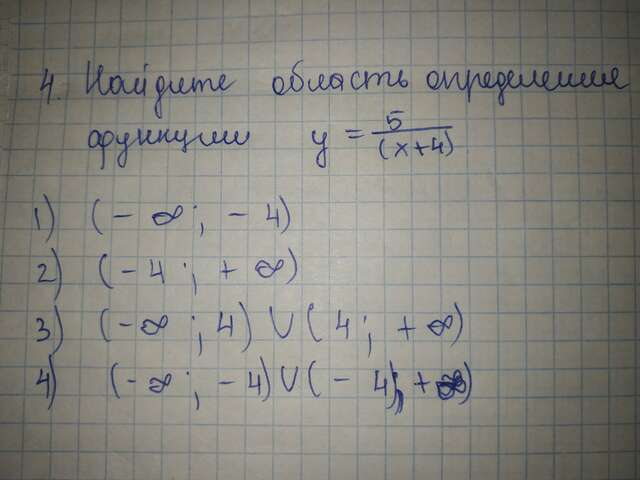 4. Найдите область определения
функции y = 5/(x+4)
1) (-∞; -4)
2) (-4; +∞)
3) (-∞; 4) ∪ (4; +∞)
4) (-∞; -4) ∪ (-4); +∞)